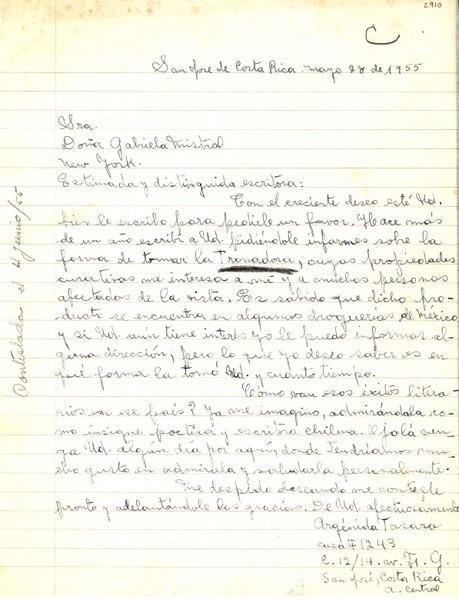 2910
C
San José de Costa Rica. mayo 28 de 1955
Sra.
Doña Gabriela Mistral
New York.
Estimada y distinguida escritora:
Con el creciente deseo esté Ud.
bien le escribo para pedirle un favor. Hace más
de un año escribí a Ud. pidiéndole informes sobre la
forma de tomar la Tronadora, cuyas propiedades
curativas me interesa a mí y a muchas personas
afectadas de la vista. Es sabido que dicho pro-
ducto se encuentra en algunas droguerías de México
y si Ud. aún tiene interés yo le puedo informar al-
guna dirección, pero lo que yo deseo saber es en
qué forma la tomó Ud. y cuánto tiempo.
Cómo van esos éxitos litera-
rios en ese país? Ya me imagino, admirándola co-
mo insigne poetisa y escritora chilena. Ojalá ven-
ga Ud. algún día por aquí, donde tendríamos mu-
cho gusto en admirarla y saludarla personalmente.
Me despido deseando me conteste
pronto y adelantándole las gracias. De Ud. afectuosamente
Argénida Tasara
casa # 1243
C. 12/14. av. F. G.
San José, Costa Rica
A. Central
Contestada el 4 junio/55